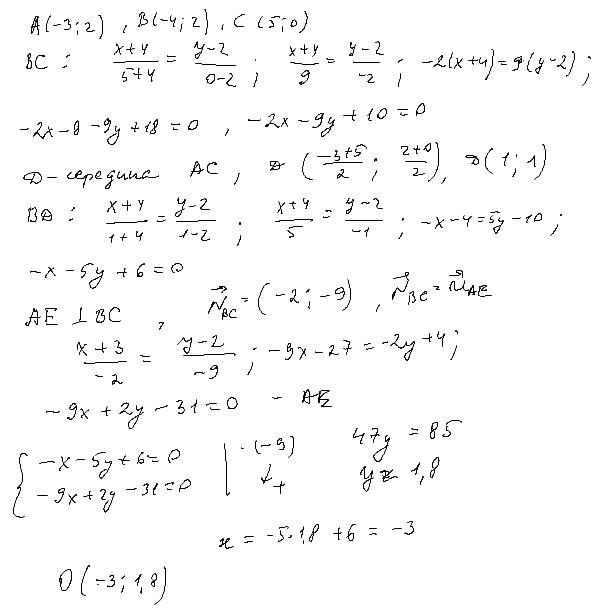 A(-3;2) , B(-4;2) , C(5;0)
BC : (x+4)/(5+4) = (y-2)/(0-2) ; (x+4)/9 = (y-2)/(-2) ; -2(x+4)=9(y-2) ;
-2x-8-9y+18=0 , -2x-9y+10=0
D-середина AC , D ((-3+5)/2 ; (2+0)/2) , D(1;1)
BD : (x+4)/(1+4) = (y-2)/(1-2) ; (x+4)/5 = (y-2)/(-1) ; -x-4=5y-10 ;
-x-5y+6=0
AE ⊥ BC , N⃗BC=(-2;-9) , N⃗BC=U⃗AE
(x+3)/(-2) = (y-2)/(-9) ; -9x-27=-2y+4 ;
-9x+2y-31=0 - AE
{ -x-5y+6=0 | ·(-9) 47y=85
-9x+2y-31=0 | ↓+ y≈1,8
x=-5·1,8+6=-3
O(-3;1,8)